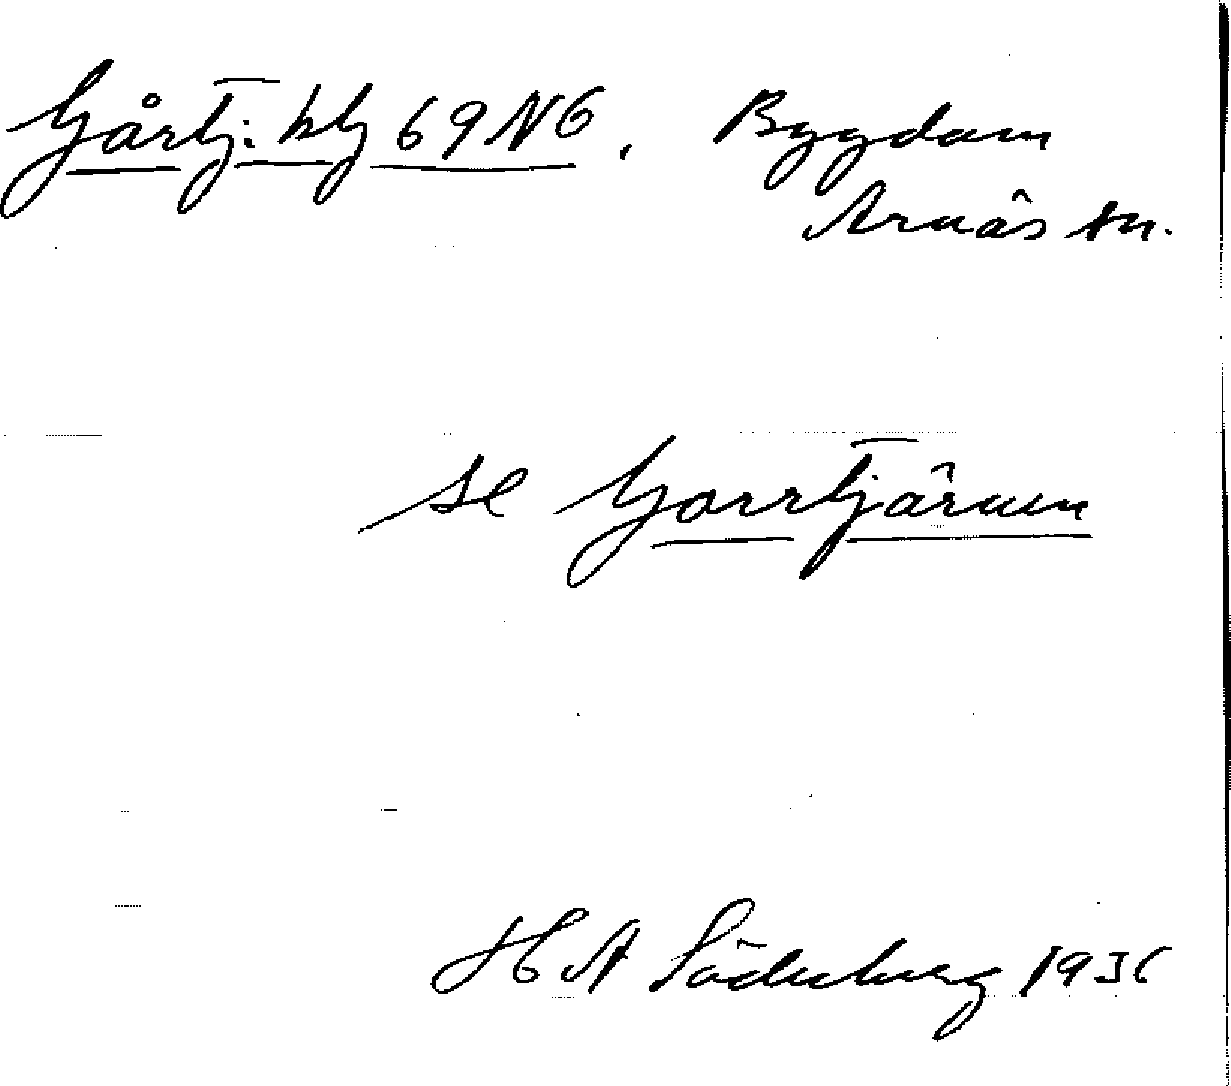 Gårtj: blj 69 NG, Bygdom
Arnäs sn.
se Gorrtjärnen
H A Söderberg 1936